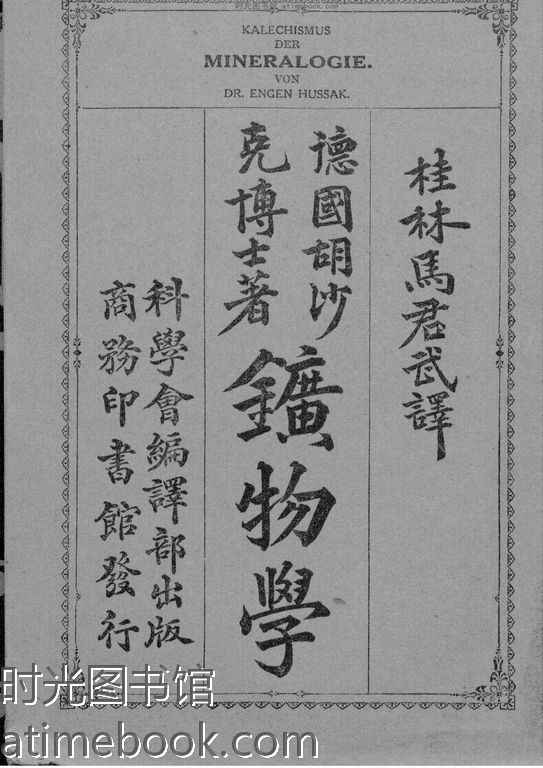 KALECHISMUS
DER
MINERALOGIE.
VON
DR. ENGEN HUSSAK.
桂林馬君武譯
德國胡沙
克博士著
鑛物學
科學會編譯部出版
商務印書館發行
时光图书馆
atimebook.com